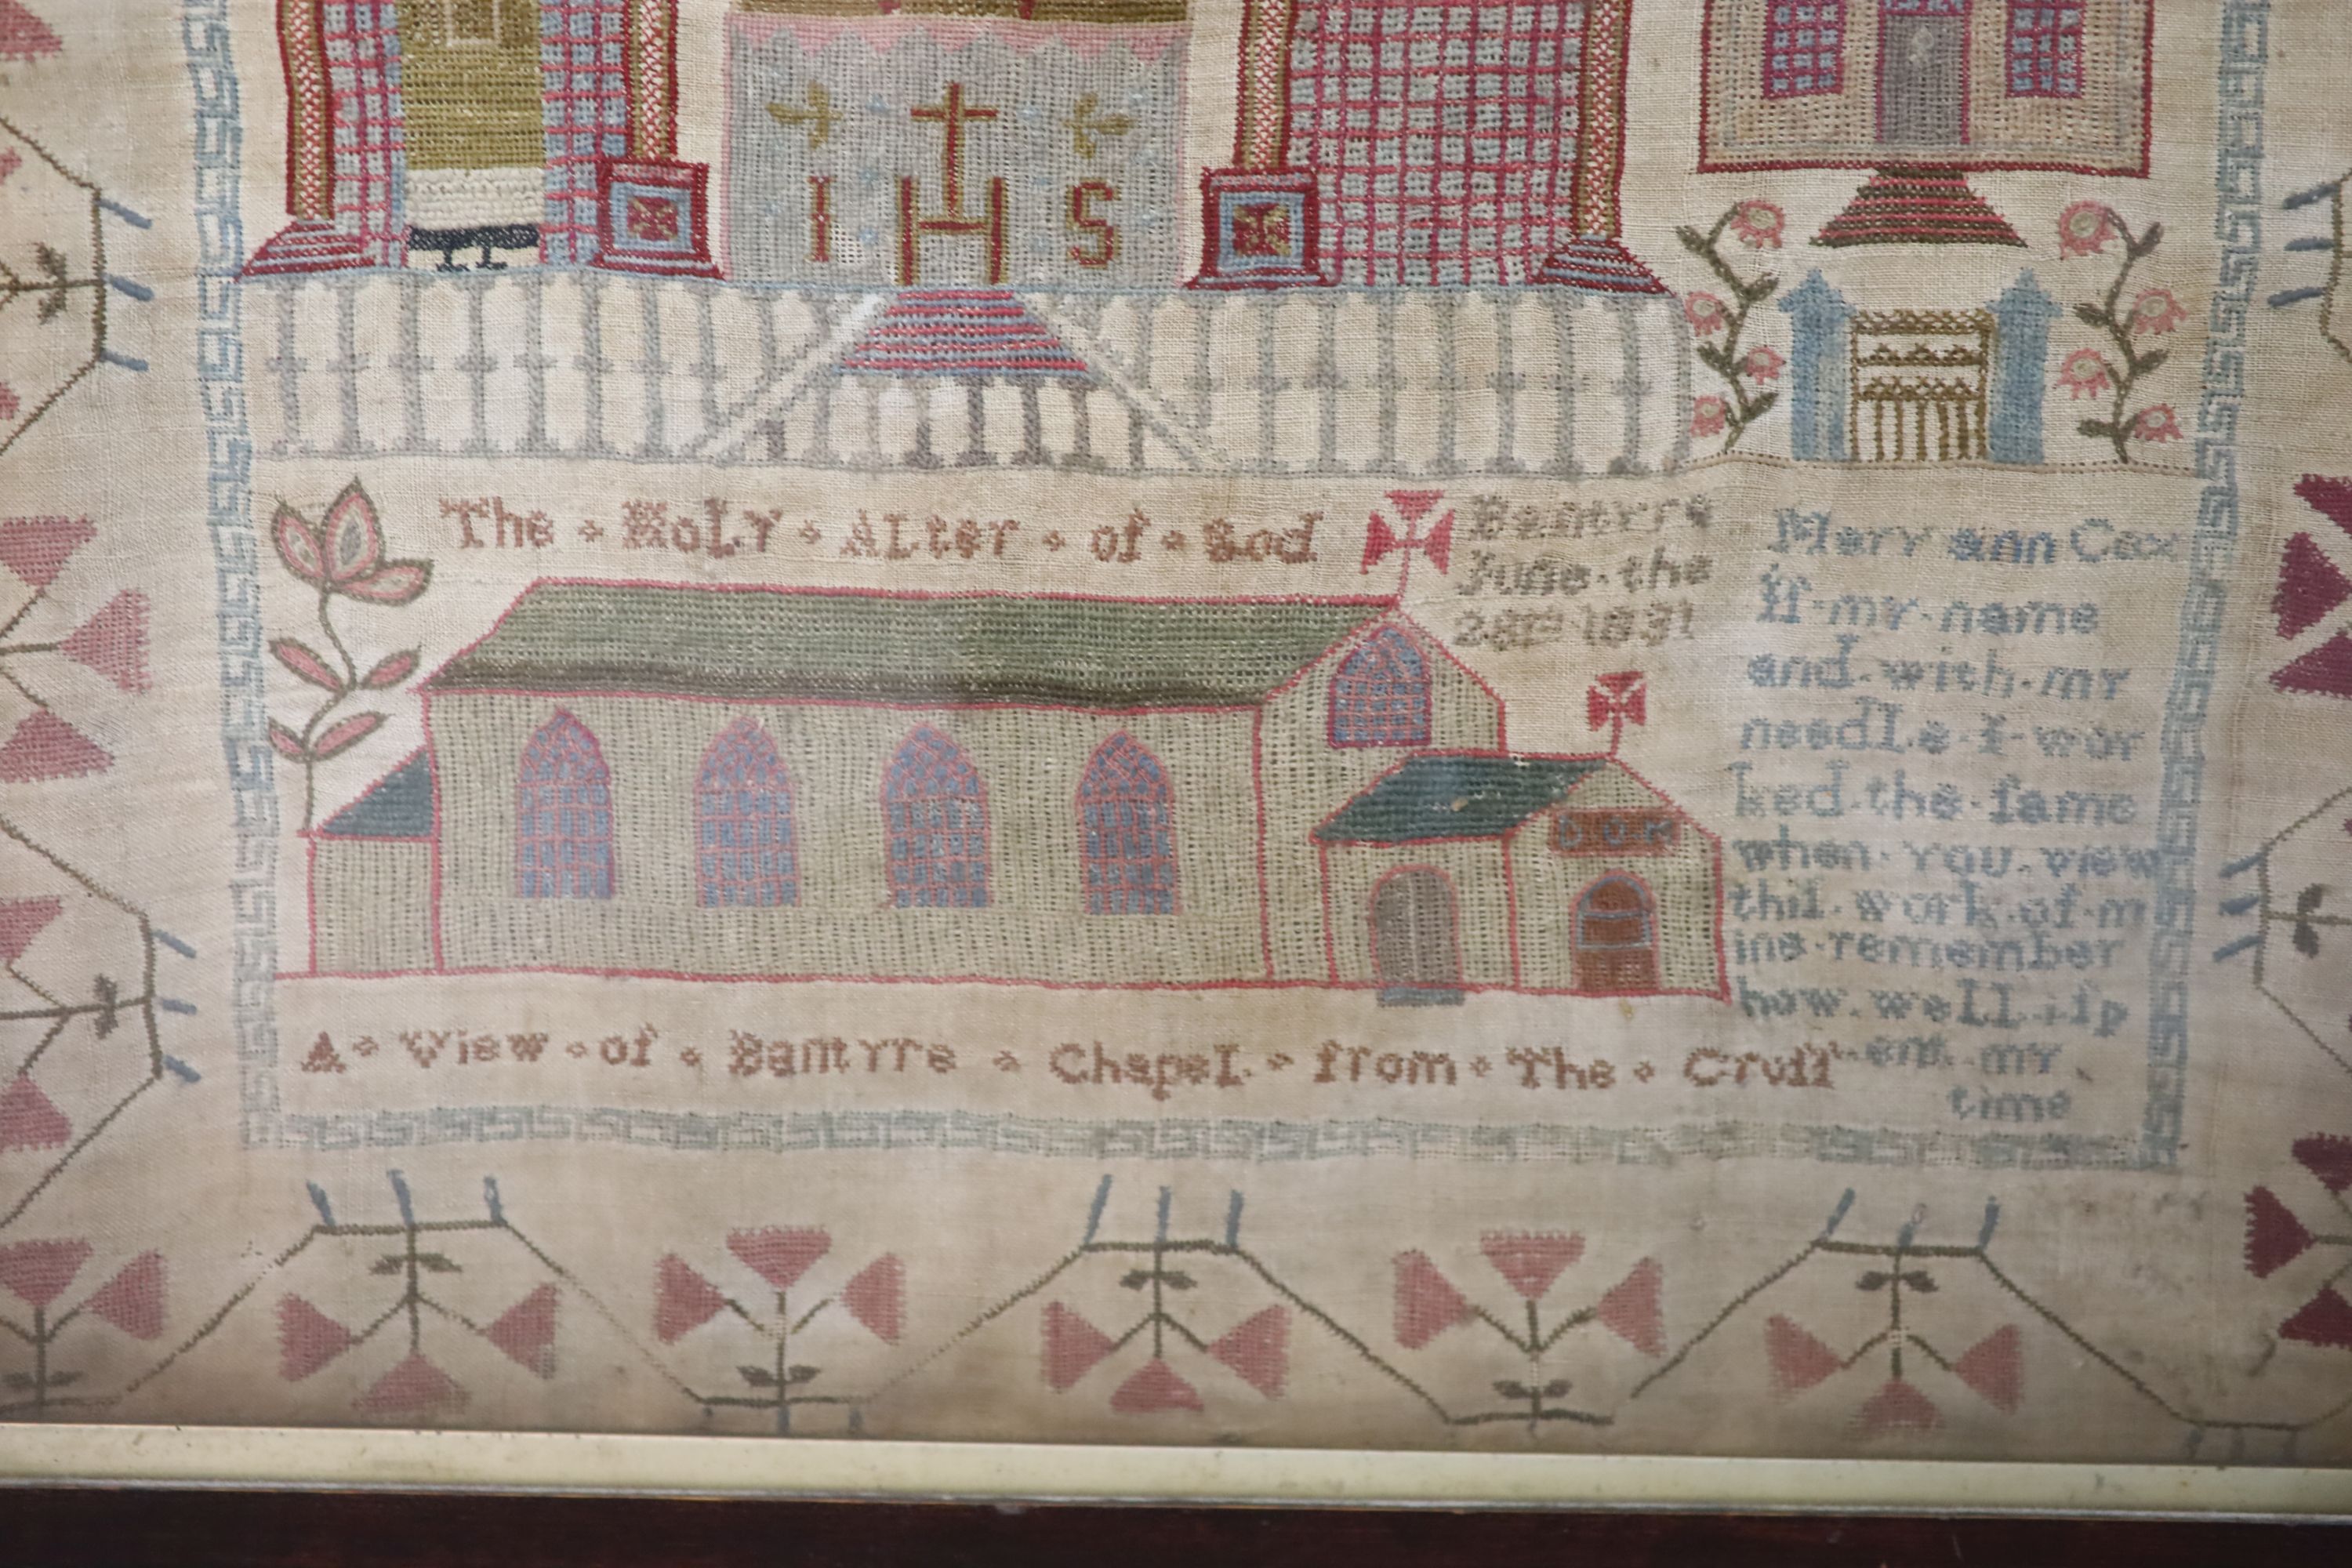 I H S
The · Holy · Alter · of · God
Bantyre
June · the
28th 1831
Mary ann Cox
is · my · name
and · with · my
needle · I · wor
ked · the · same
when · you · view
this · work · of · m
ine · remember
how · well · i · sp
ent · my
time
D · O · M
A · View · of · Bantyre · Chapel · from · The · Cross